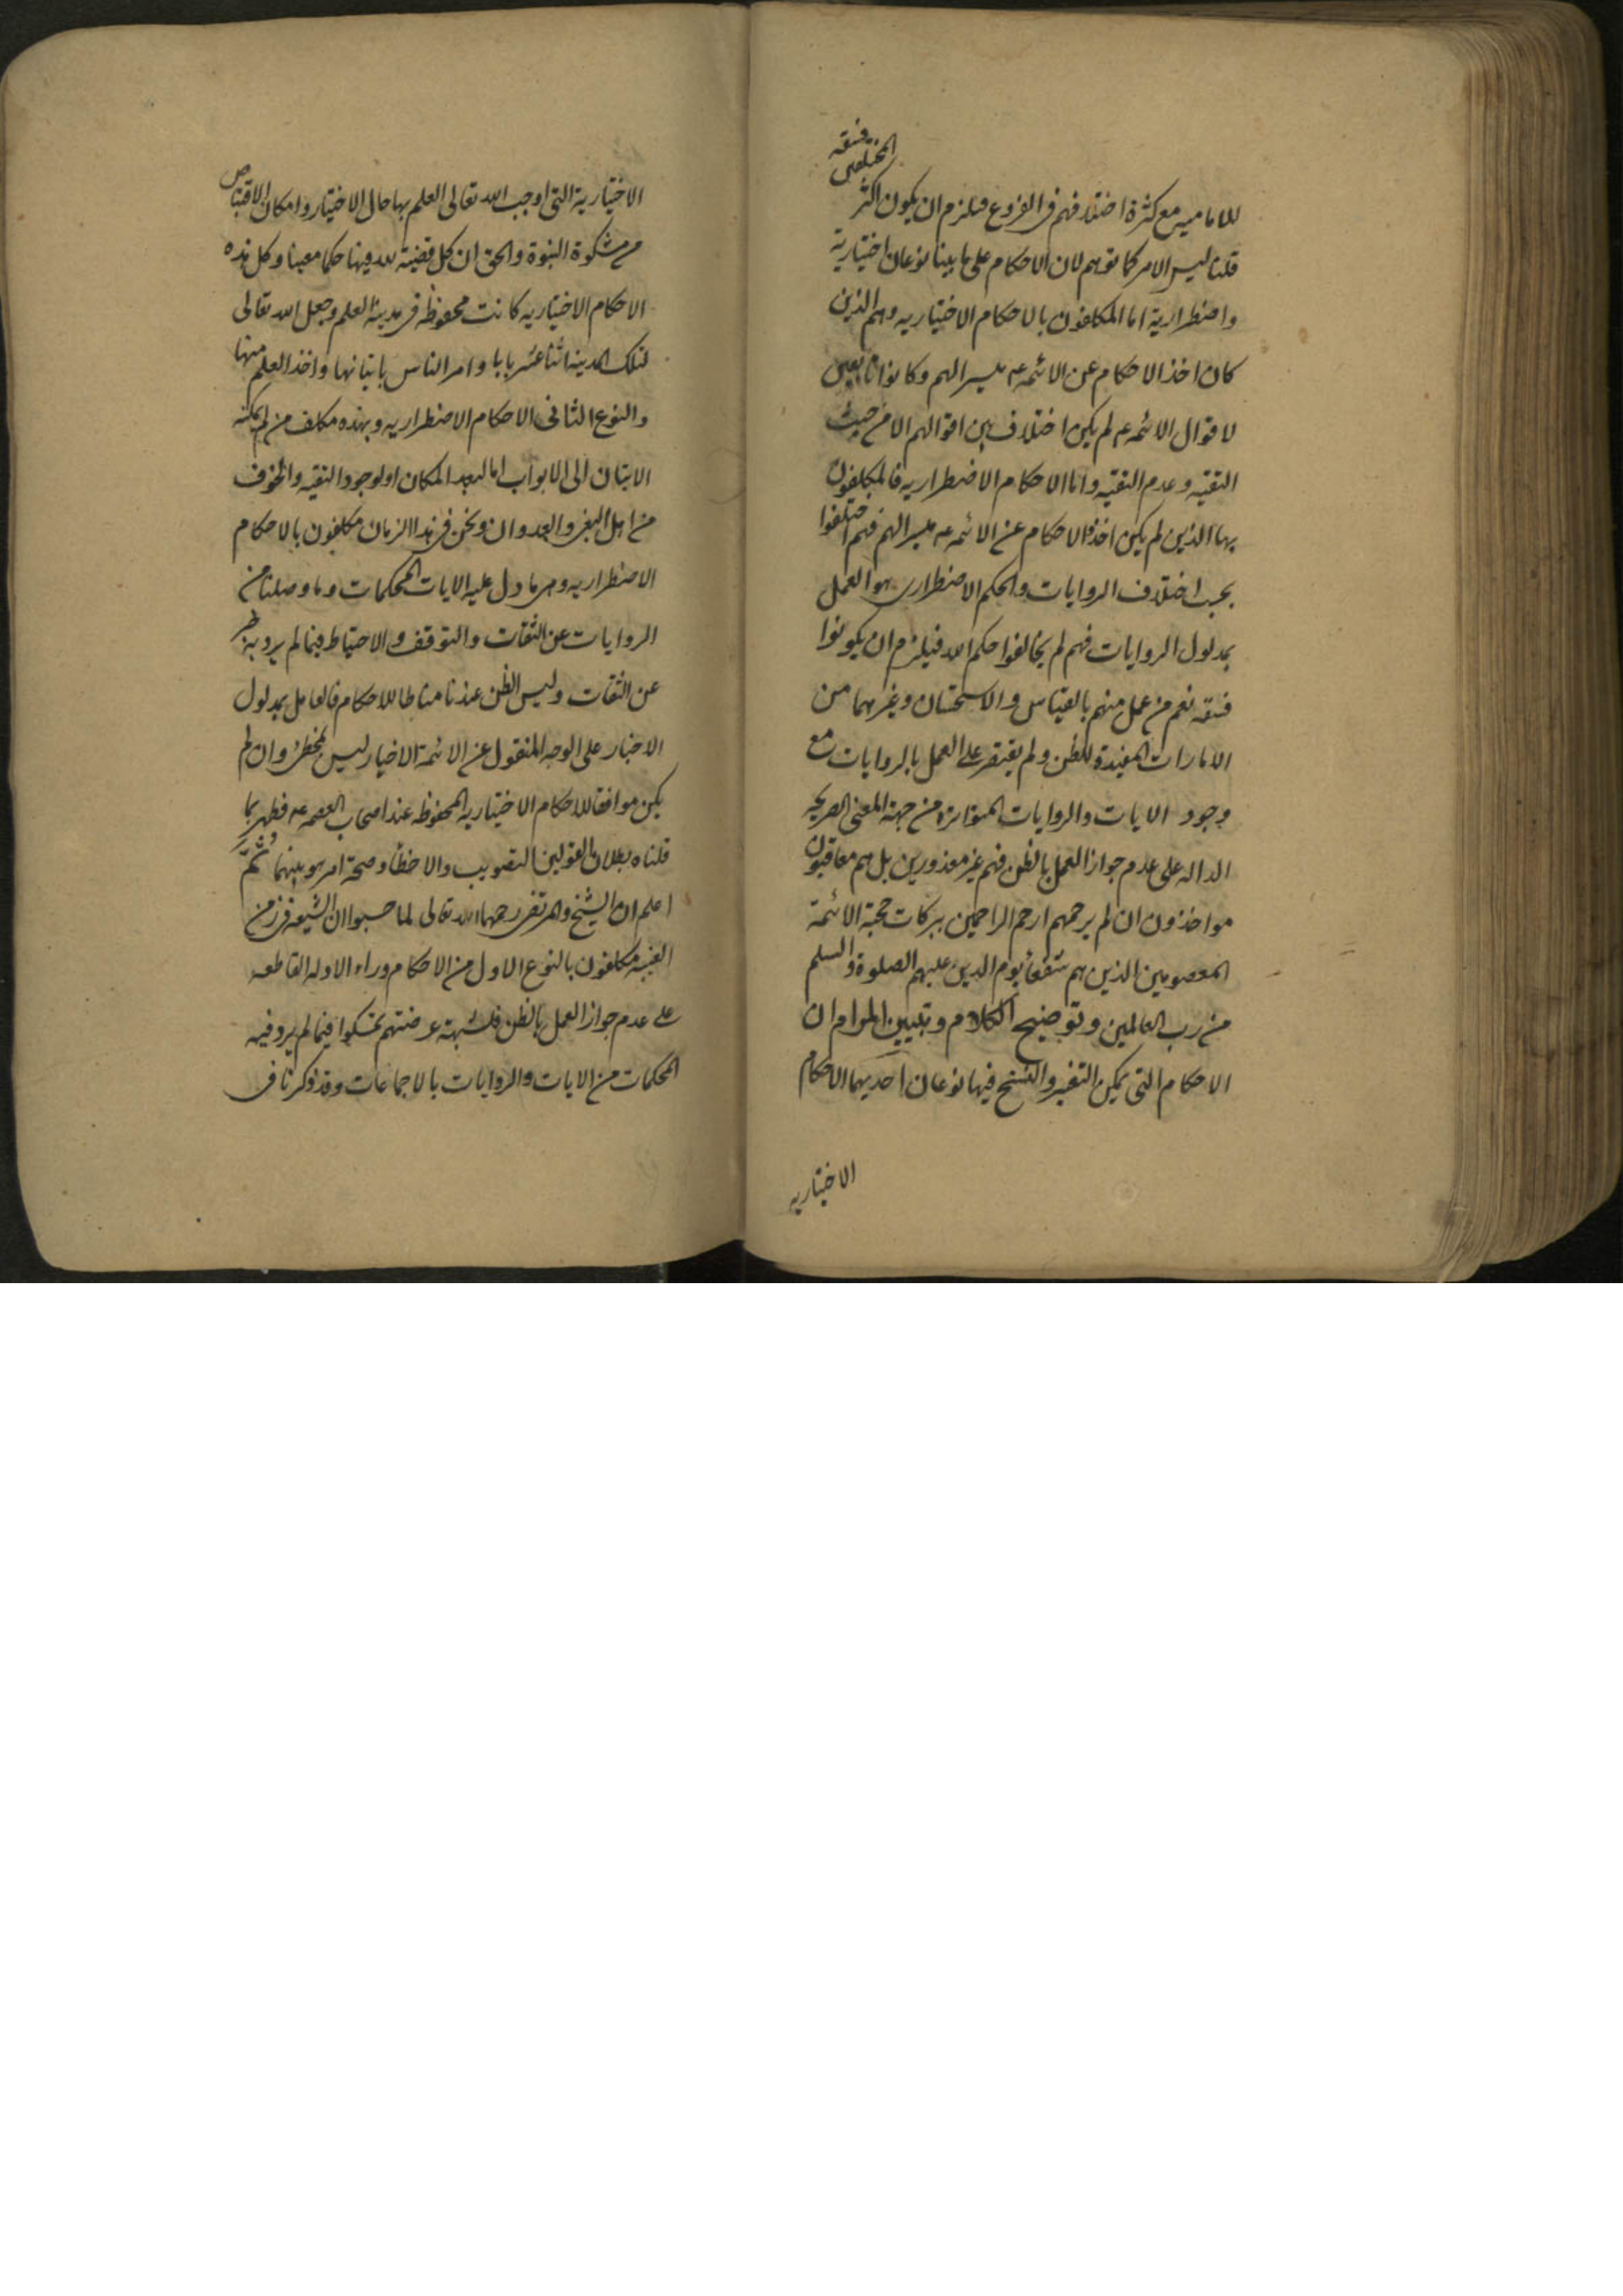 للاماميين مع كثرة اختلافهم فى الفروع فيلزم ان يكون اكثر
المختلفين فسقه
قلنا ليس الامر كما توهم لان الاحكام على ما بينا نوعان اختيارية
واضطرارية اما المكلفون بالاحكام الاختياريه وهم الذين
كان اخذ الاحكام عن الائمه عم ميسرا لهم وكانوا تابعين
لاقوال الائمه عم لم يكن اختلاف بين اقوالهم الا من حيث
التقيه وعدم التقيه واما الاحكام الاضطراريه فالمكلفون
بها الذين لم يكن اخذ الاحكام عن الائمه عم ميسرا لهم فهم اختلفوا
بحسب اختلاف الروايات والحكم الاضطرارى هو العمل
بمدلول الروايات فهم لم يخالفوا حكم الله فيلزم ان يكونوا
فسقه نعم من عمل منهم بالقياس والاستحسان وغيرهما من
الامارات المفيدة للظن ولم يقتصر على العمل بالروايات مع
وجود الايات والروايات المتواترة من جهة المعنى الصريحه
الداله على عدم جواز العمل بالظن فهم غير معذورين بل هم معاقبون
مواخذون ان لم يرحمهم ارحم الراحمين ببركات محبة الائمة
المعصومين الذين هم شفعاء يوم الدين عليهم الصلوة والسلم
من رب العالمين وتوضيح الكلام وتبيين المرام ان
الاحكام التى يمكن التغير والنسخ فيها نوعان احديهما الاحكام
الاختياريه
الاختيارية التى اوجب الله تعالى العلم بها حال الاختيار وامكان الاقتباس
من مشكوة النبوة والحق ان كل قضية لله فيها حكما معينا وكل هذه
الاحكام الاختياريه كانت محفوظه فى مدينة العلم وجعل الله تعالى
لتلك المدينه اثنا عشر بابا وامر الناس باتيانها واخذ العلم منها
والنوع الثانى الاحكام الاضطراريه وبهذه مكلف من لم يمكنه
الاتيان الى الابواب اما لبعد المكان او لوجود التقيه والخوف
من اهل البغى والعدوان ونحن فى هذا الزمان مكلفون بالاحكام
الاضطراريه وهى ما دل عليه الايات المحكمات وما وصلنا من
الروايات عن الثقات والتوقف والاحتياط فيما لم يرد به خبر
عن الثقات وليس الظن عندنا مناطا للاحكام فالعامل بمدلول
الاخبار على الوجه المنقول عن الائمة الاخيار ليس بمخطئ وان لم
يكن موافقا للاحكام الاختياريه المحفوظه عند اصحاب العصمه عم فظهر بما
قلناه بطلان القولين التصويب والاخطا وصحة امر هو بينهما ثم
اعلم ان الشيخ والمرتضى رحمهما الله تعالى لما حسبوا ان الشيعه فى زمن
الغيبه مكلفون بالنوع الاول من الاحكام وراء الادله القاطعه
على عدم جواز العمل بالظن فلشبهة عرضتهم تمسكوا فيما لم يرد فيه
المحكمات من الايات والروايات بالاجماعات وقد ذكرنا فى